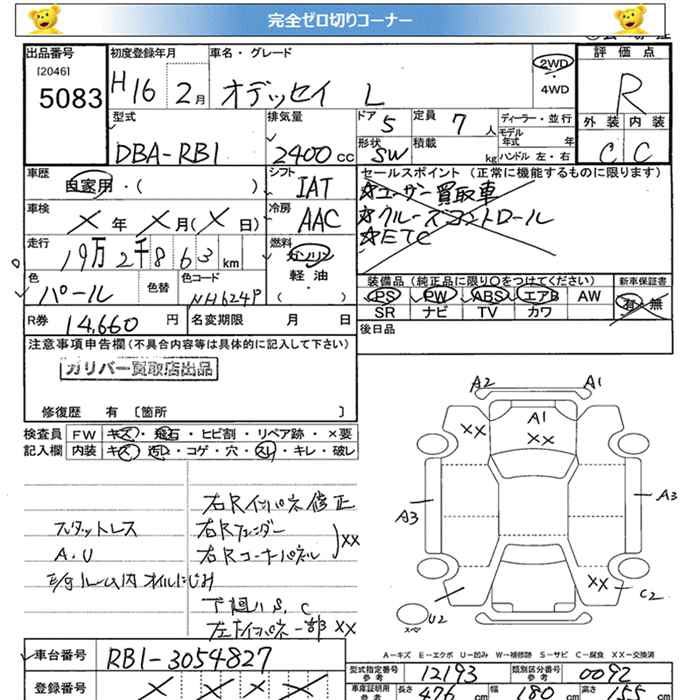 完全ゼロ切りコーナー
出品番号 [2046] 5083
初度登録年月 H16 2月
車名・グレード オデッセイ L
2WD・4WD
評価点 R
外装 C 内装 C
型式 DBA-RB1
排気量 2400cc
ドア 5 形状 SW
定員 7人 積載 kg
ディーラー・並行
モデル年式 年
ハンドル 左・右
車歴 自家用・( )
シフト IAT
セールスポイント (正常に機能するものに限ります)
☆ユーザー買取車
☆クルーズコントロール
☆ETC
車検 × 年 × 月 (× 日)
冷房 AAC
走行 19万2千863km
燃料 ガソリン 軽油 ( )
色 パール 色替 色コード NH624P
装備品 (純正品に限り〇をつけてください) 新車保証書
PS PW ABS エアB AW 有・無
SR ナビ TV カワ
R券 14,660円 名変期限 月 日
後日品
注意事項申告欄 (不具合内容等は具体的に記入して下さい)
ガリバー買取店出品
修復歴 有 〔箇所 〕
検査員 FW キズ・飛石・ヒビ割・リペア跡・×要
記入欄 内装 キズ・汚レ・コゲ・穴・スレ・キレ・破レ
右Rインパネ修正
スタットレス 右Rフェンダー
A.U 右Rコーナーパネル XX
E/gルーム内オイルにじみ
下廻りS,C
左Fインパネ一部XX
A2 A1
XX A1 XX
A3 A3
XX C2
U2
スペア
A-キズ E-エクボ U-凹み W-補修跡 S-サビ C-腐食 XX-交換済
車台番号 RB1-3054827
型式指定番号 参考 12193 類別区分番号 参考 0092
登録番号 × × × ×
車庫証明用 参考 長さ 476cm 幅 180cm 高さ 155cm